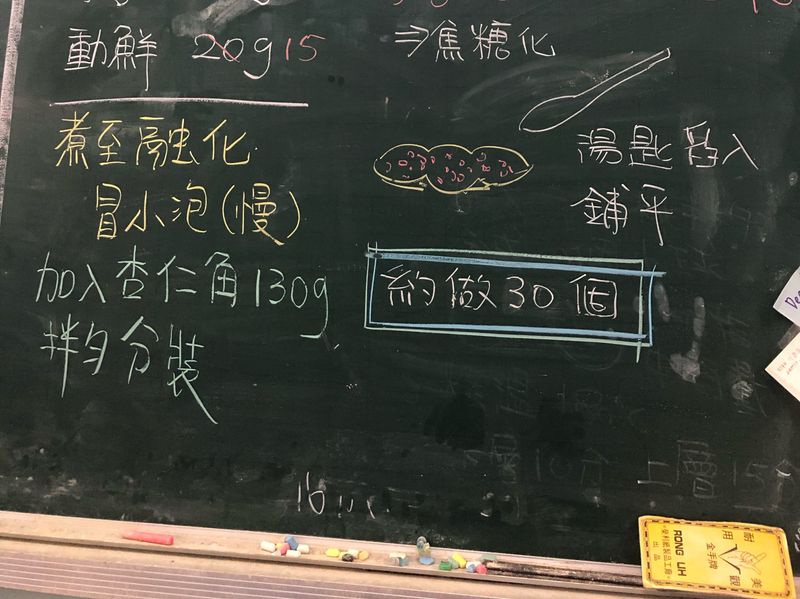 動鮮 20g 15
⇒焦糖化
煮至融化
冒小泡(慢)
湯匙舀入
鋪平
加入杏仁角130g
拌勻分裝
約做30個
耐用
美觀
金手牌
RONG LIH
出品